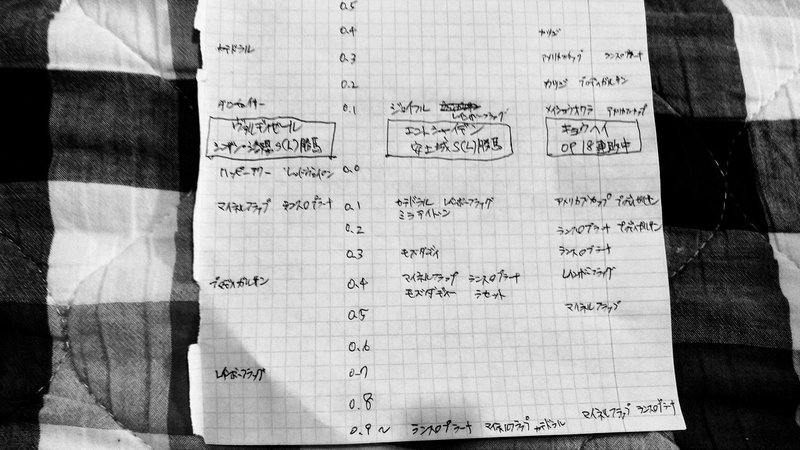 0.5
0.4 カリジ
カテドラル 0.3 アメリカズカップ ランスオブプラーナ
0.2 カリジ プロディガルサン
0.1 ジョイフル レインボーフラッグ メイショウオワラ アメリカズカップ
ヴェルディゼール エントシャイデン キョウヘイ
S(L)勝馬 安土城S(L)勝馬 OP18連敗中
ハッピーアワー レッドヴェイロン 0.0
マイネルフラップ ランスオブプラーナ 0.1 カテドラル レインボーフラッグ アメリカズカップ プロディガルサン
ミラアイトーン
0.2 ランスオブプラーナ プロディガルサン
0.3 モズダディー ランスオブプラーナ
プロディガルサン 0.4 マイネルフラップ ランスオブプラーナ レインボーフラッグ
モズダディー ラセット
0.5 マイネルフラップ
0.6
レインボーフラッグ 0.7
0.8
0.9~ ランスオブプラーナ マイネルフラップ カテドラル マイネルフラップ ランスオブプラーナ